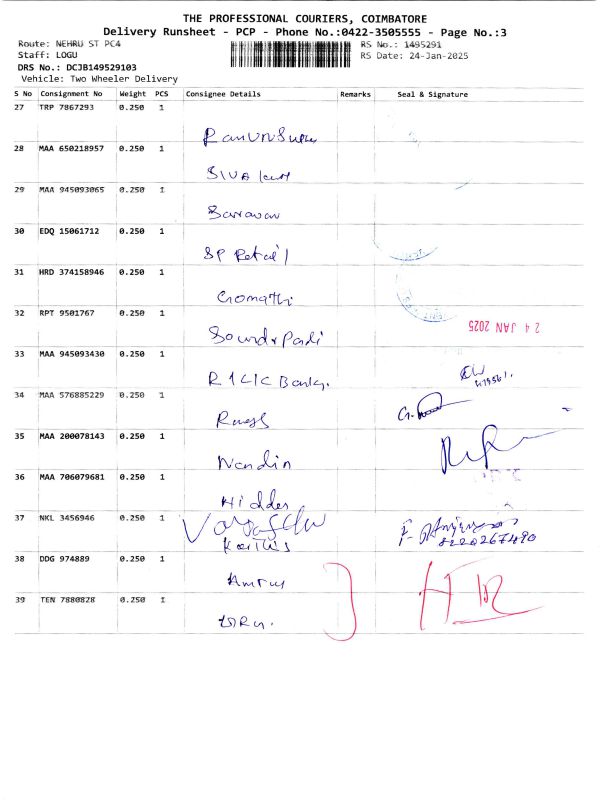 THE PROFESSIONAL COURIERS, COIMBATORE
Delivery Runsheet - PCP - Phone No.:0422-3505555 - Page No.:3
Route: NEHRU ST PC4 RS No.: 1495291
Staff: LOGU RS Date: 24-Jan-2025
DRS No.: DCJB149529103
Vehicle: Two Wheeler Delivery
S No Consignment No Weight PCS Consignee Details Remarks Seal & Signature
27 TRP 7867293 0.250 1
28 MAA 650218957 0.250 1
29 MAA 945093065 0.250 1
Saravan
30 EDQ 15061712 0.250 1
SP Retail
31 HRD 374158946 0.250 1
Gomathi
32 RPT 9501767 0.250 1
24 JAN 2025
33 MAA 945093430 0.250 1
Bank.
34 MAA 576885229 0.250 1
35 MAA 200078143 0.250 1
Nandin
36 MAA 706079681 0.250 1
37 NKL 3456946 0.250 1
38 DDG 974889 0.250 1
39 TEN 7880828 0.250 1